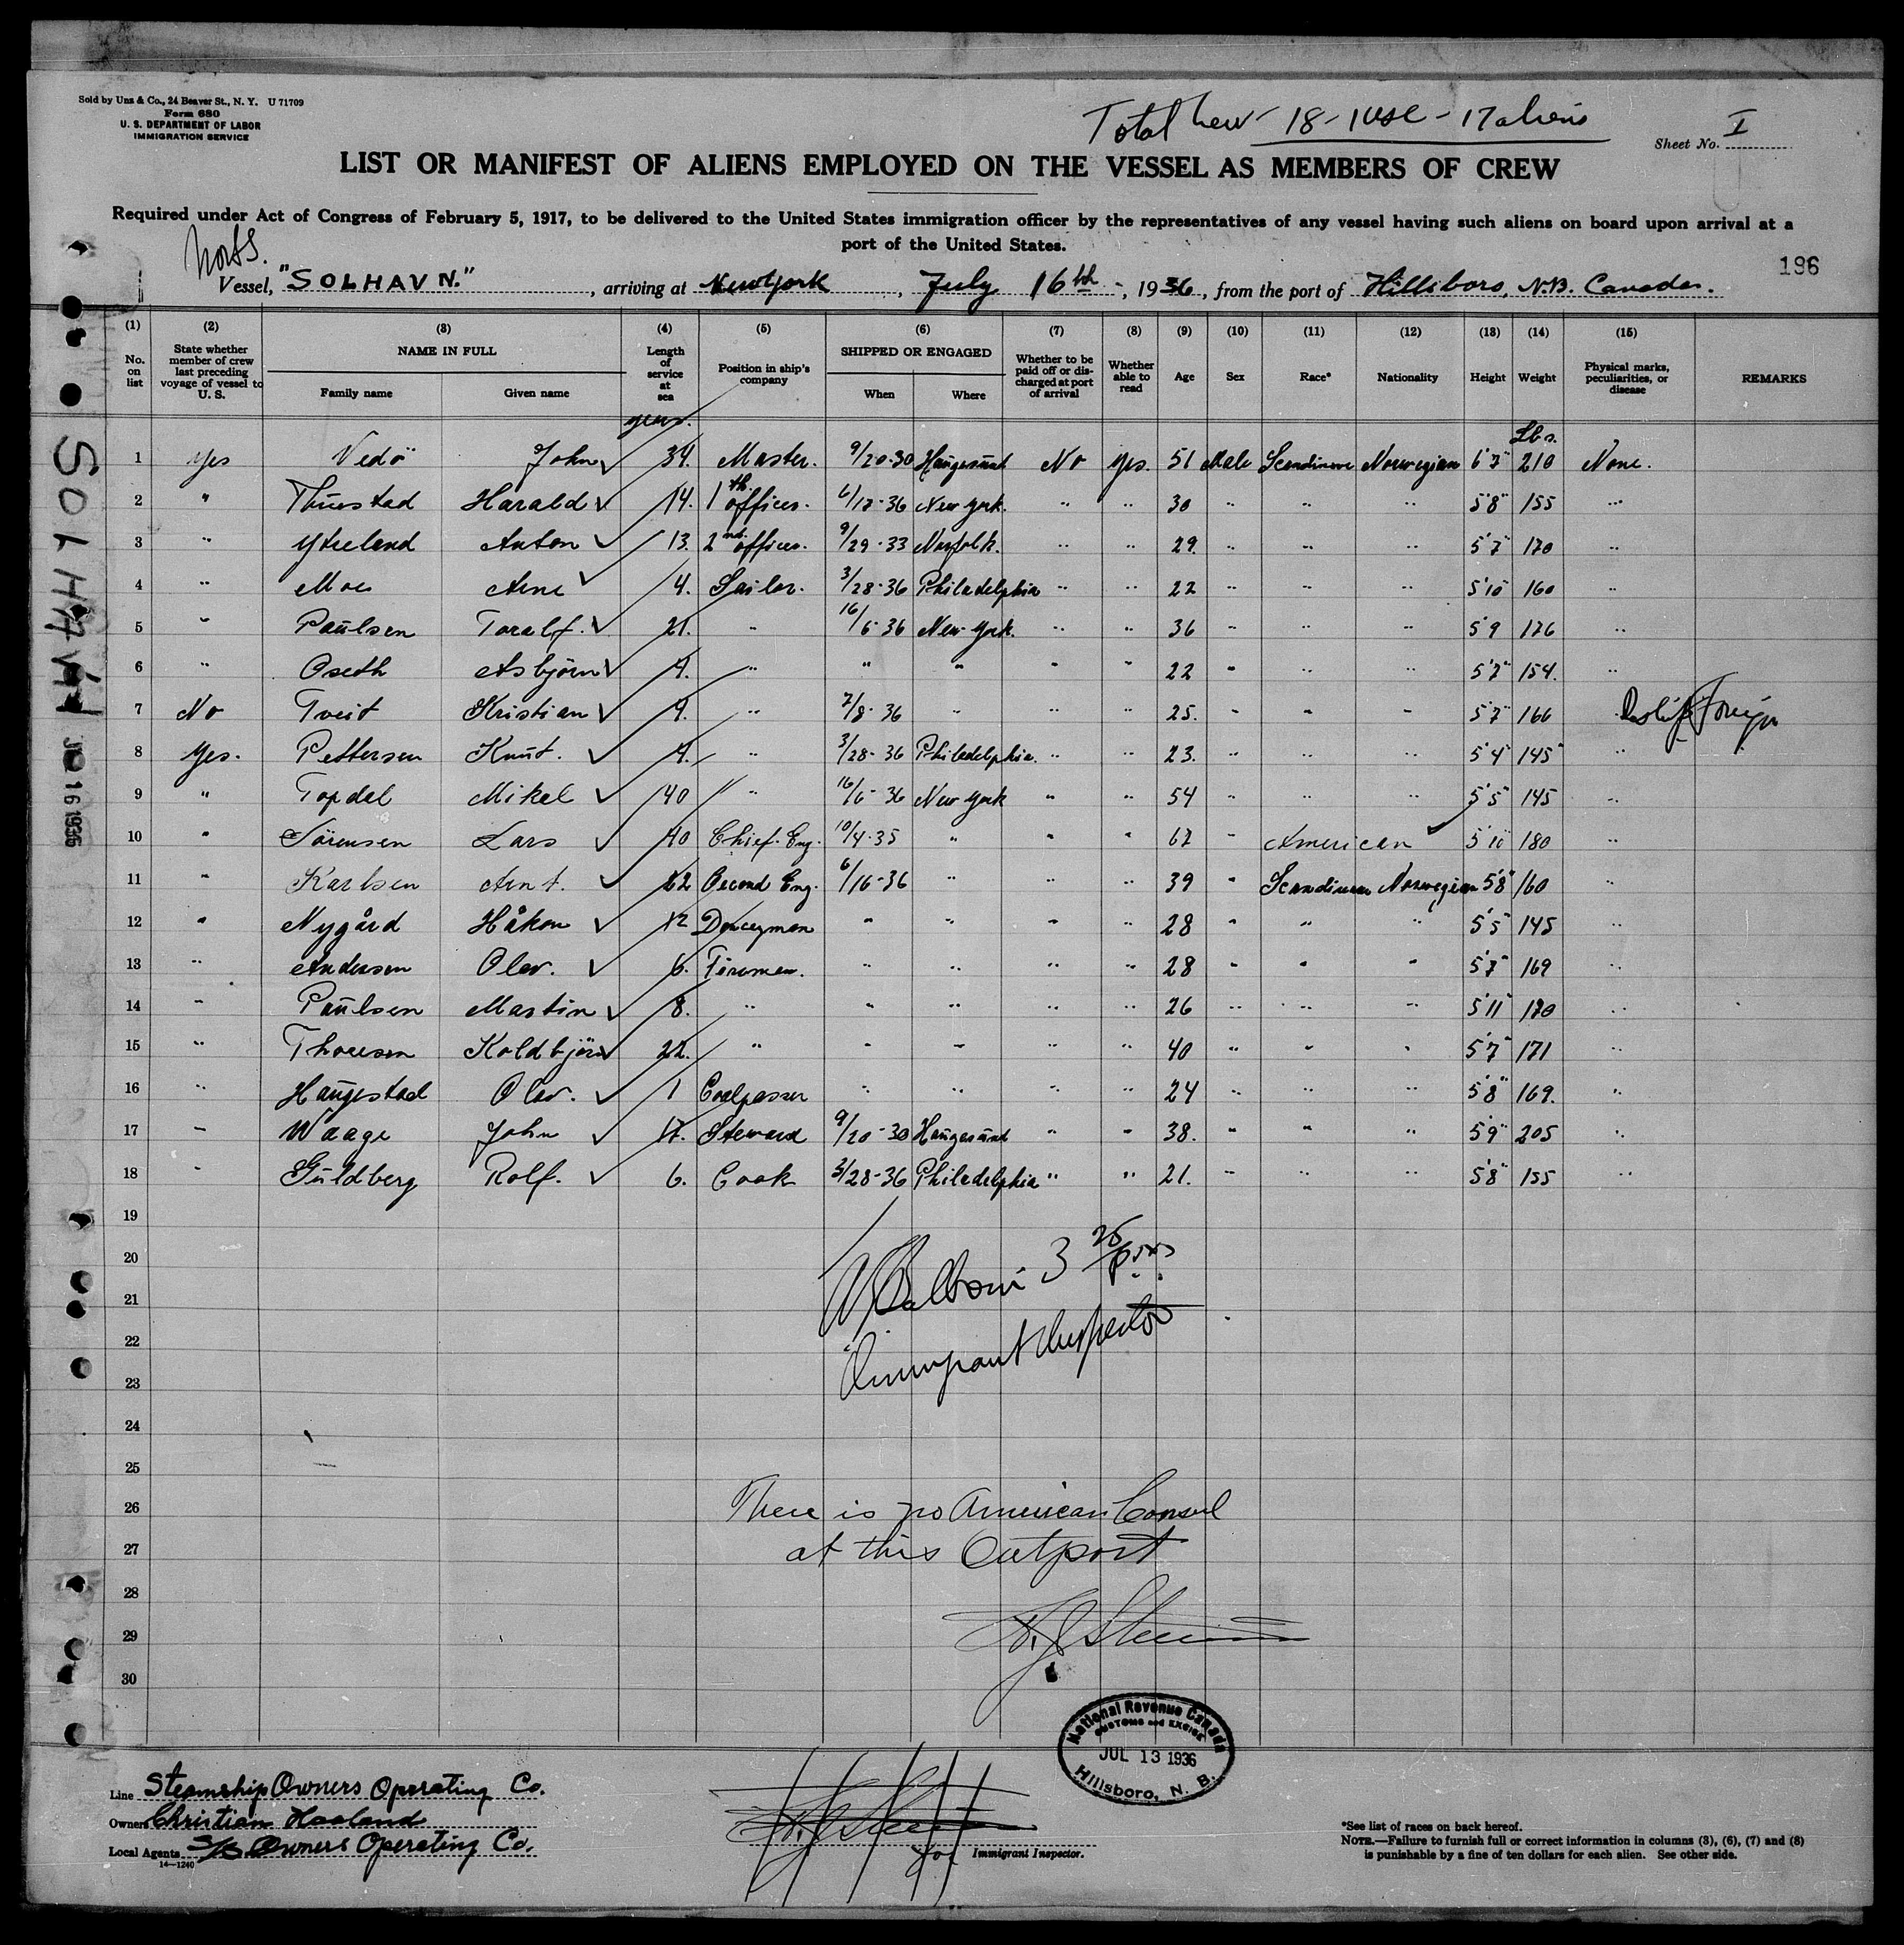 Sold by Unz & Co., 24 Beaver St., N. Y. U 71709
Form 680
U. S. DEPARTMENT OF LABOR
IMMIGRATION SERVICE
Total Crew 18 - 1 USC - 17 aliens
Sheet No. I
LIST OR MANIFEST OF ALIENS EMPLOYED ON THE VESSEL AS MEMBERS OF CREW
Required under Act of Congress of February 5, 1917, to be delivered to the United States immigration officer by the representatives of any vessel having such aliens on board upon arrival at a
port of the United States.
196
Vessel, "SOLHAVN.", arriving at New York, July 16th, 1936, from the port of Hillsboro, N.B. Canada.
(1) (2) (3) (4) (5) (6) (7) (8) (9) (10) (11) (12) (13) (14) (15)
No. on list State whether member of crew last preceding voyage of vessel to U. S. NAME IN FULL Family name Given name Length of service at sea Position in ship's company SHIPPED OR ENGAGED When Where Whether to be paid off or discharged at port of arrival Whether able to read Age Sex Race* Nationality Height Weight Physical marks, peculiarities, or disease REMARKS
years. Lbs.
1 Yes Vedö John 34. Master. 9/20-30 Haugesund No Yes. 51 Male Scandinave Norwegian 6'7" 210 None.
2 " Harald 14. 1th officer. 6/17-36 New York. " " 30 " " " 5'8" 155 "
3 " Ytreland Anton 13. 2nd officer. 9/29-33 Norfolk. " " 29. " " " 5'7" 170 "
4 " Moe Arne 4. Sailor. 3/28-36 Philadelphia " " 22 " " " 5'10" 160 "
5 " Paulsen Toralf. 21. " 16/6-36 New York. " " 36 " " " 5'9 176 "
6 " Oseth Asbjörn 4. " " " " " 22 " " " 5'7" 154. "
7 No Tveit Kristian 4. " 7/8-36 " " " 25. " " " 5'7" 166 " Foreign
8 Yes. Pettersen Knut. 4. " 3/28-36 Philadelphia. " " 23. " " " 5'4" 145 "
9 " Topdal Mikal 40 " 16/6-36 New York " " 54 " " " 5'5" 145 "
10 " Sörensen Lars 40 Chief. Eng. 10/4-35 " " " 67 " American 5'10" 180 "
11 " Karlsen Arnt. 12 Second Eng. 6/16-36 " " " 39 " Scandinave Norwegian 5'8" 160 "
12 " Nygård Håkon 12 Donceyman " " " " 28 " " " 5'5" 145 "
13 " Andersen Olav. 6. Fireman. " " " " 28 " " " 5'7" 169 "
14 " Paulsen Martin 8. " " " " " 26 " " " 5'11" 170 "
15 " Thoresen Koldbjörn 22. " " " " " 40 " " " 5'7" 171 "
16 " Haugestad Olav. 1 Coalpasser " " " " 24 " " " 5'8" 169. "
17 " Waage John 17. Steward 9/20-30 Haugesund " " 38. " " " 5'9" 205 "
18 " Guldberg Rolf. 6. Cook 3/28-36 Philadelphia " " 21. " " " 5'8" 155 "
19
20
21
22
23
24
25
26
27
28
29
30
3 25 p.m.
Immigrant Inspector
There is no American Consul
at this Outport
National Revenue Canada
CUSTOMS and EXCISE
JUL 13 1936
Hillsboro, N. B.
Line Steamship Owners Operating Co.
Owners Christian Haaland
Local Agents S/S Owners Operating Co.
14—1240
Immigrant Inspector.
*See list of races on back hereof.
NOTE.—Failure to furnish full or correct information in columns (3), (6), (7) and (8)
is punishable by a fine of ten dollars for each alien. See other side.
SOLHAVN
JUL 16 1936